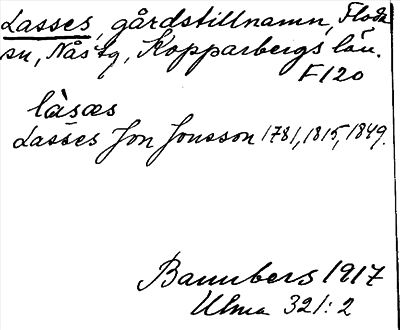 Lasses, gårdstillnamn, Floda
sn, Nås tg, Kopparbergs län.
F120
làsæs
Lasses Jon Jonsson 1781, 1815, 1849.
Bannbers 1917
Ulma 321:2